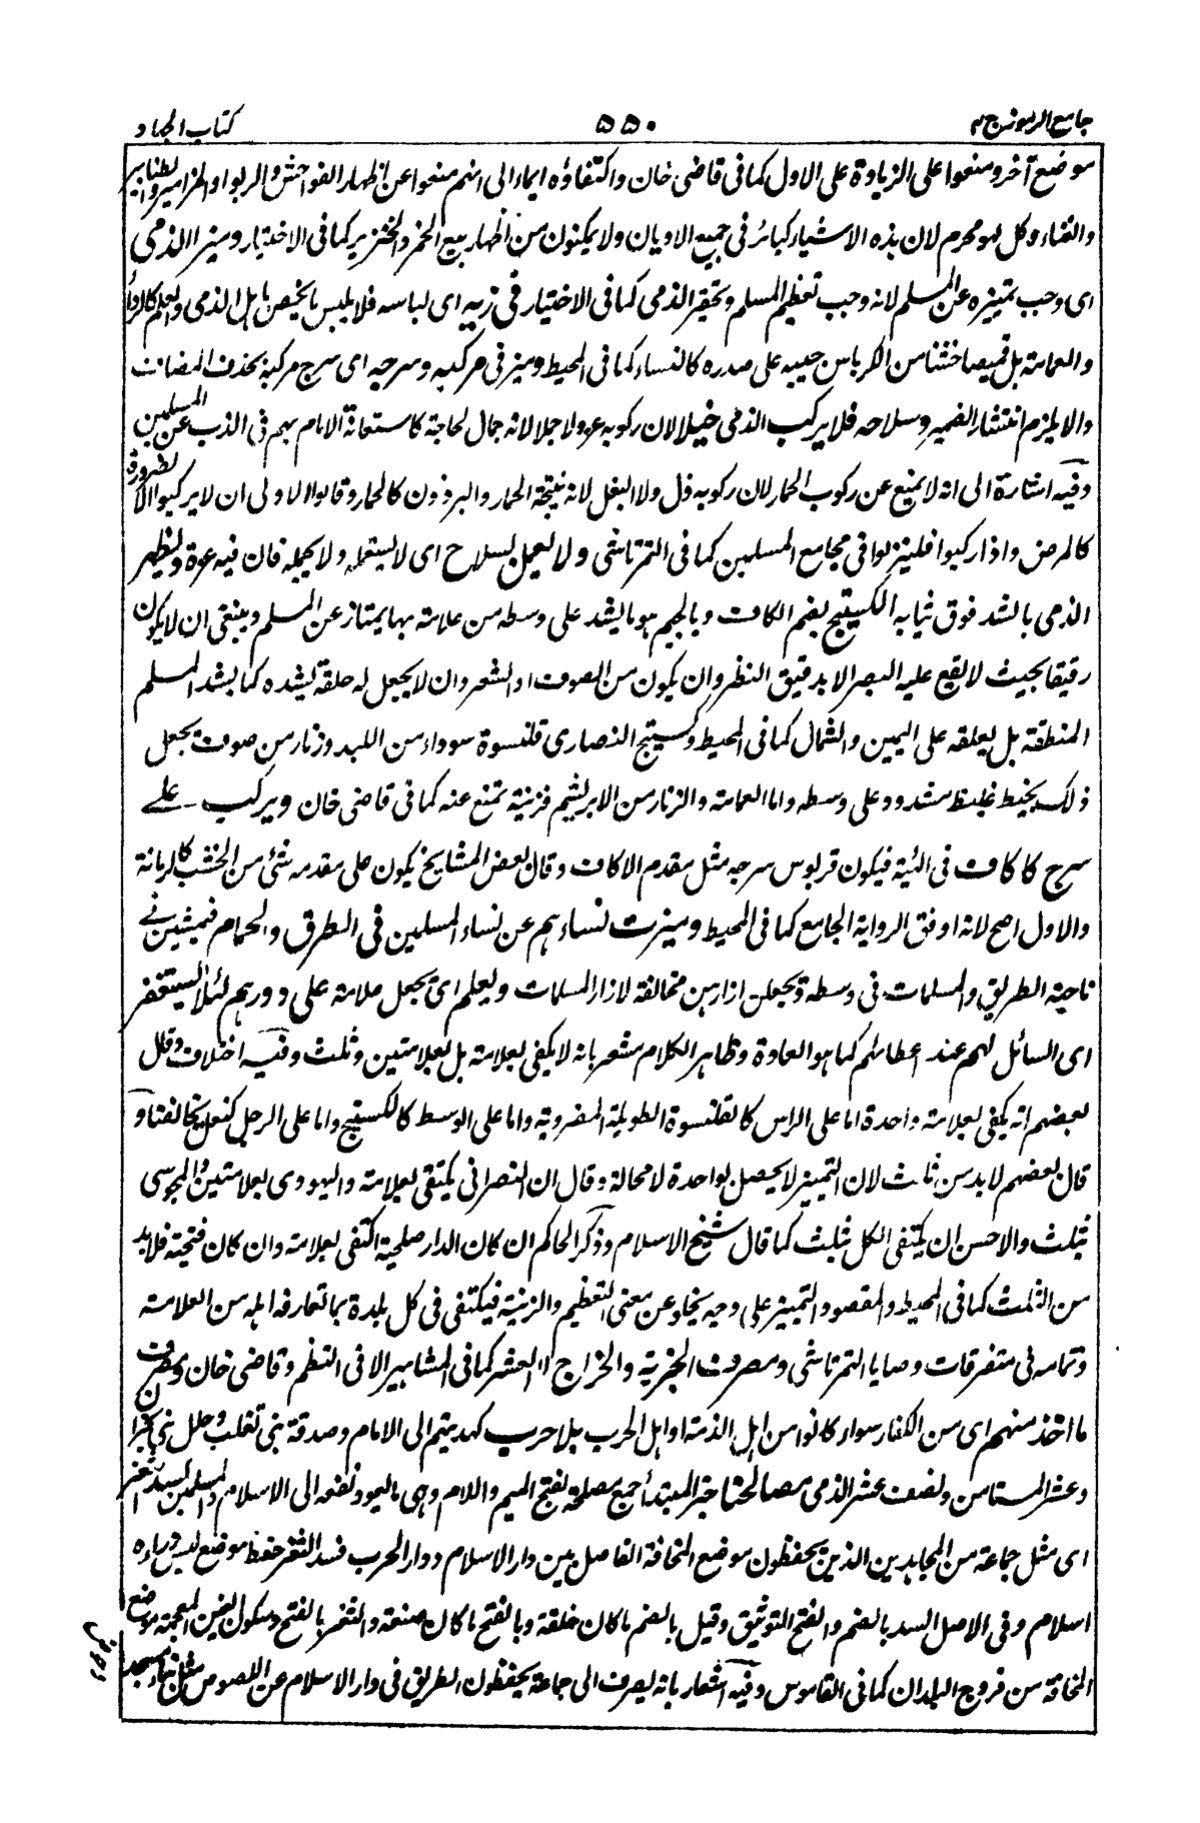 جامع الرموز ج٢
٥٥٠
كتاب الجهاد
موضع آخر ومنعوا على الزيادة على الاول كما في قاضي خان واكتفاؤه ايماء الى انهم منعوا عن اظهار الفواحش والربوا والمزامير والطنابير
والغناء وكل لهو محرم لان هذه الاشياء كبائر في جميع الاديان ولا يمكنون من اظهار بيع الخمر والخنزير كما في الاختيار وميز الذمي
اى وجب تمييزه عن المسلم لانه وجب تعظيم المسلم وتحقير الذمي كما في الاختيار في زيه اى لباسه فلا يلبس ما يخص باهل الذمى والعلم كالرداء
والعمامة بل قميصا خشنا من الكرباس جيبه على صدره كالنساء كما في المحيط وميز في مركبه وسرجه اى سرج مركبه بحذف المضاف
والا يلزم انتشار الضمير وسلاحه فلا يركب الذمى خيلا لان ركوبه عز ولا جملا لانه جمال لحاجة كاستعانة الامام بهم في الذب عن المسلمين
وفيه اشارة الى انه لا يمنع عن ركوب الحمار لان ركوبه ذل ولا البغل لانه نتيجة الحمار والبرذون كالحمار وقالوا الاولى ان لا يركبوا الا لضرورة
كالمرض واذا ركبوا فلينزلوا في مجامع المسلمين كما في التمرتاشي ولا يعمل بسلاح اى لا يستعمله ولا يحمله فان فيه عزة ويظهر
الذمي بالشد فوق ثيابه الكستيج بضم الكاف وبالجيم هو ما يشد على وسطه من علامة بها يمتاز عن المسلم وينبغى ان لا يكون
رقيقا بحيث لا يقع عليه البصر الا بدقيق النظر وان يكون من الصوف او الشعر وان لا يجعل له حلقة يشده كما يشد المسلم
المنطقة بل يعلقه على اليمين والشمال كما في المحيط وكستيج النصارى قلنسوة سوداء من اللبد وزنار من صوف يجعل
ذلك بخيط غليظ مشدود على وسطه واما العمامة والزنار من الابريشم فزينة تمنع عنه كما في قاضي خان ويركب على
سرج كاكاف في الهيئة فيكون قربوس سرجه مثل مقدم الاكاف وقال بعض المشايخ يكون على مقدمه شئ من الخشب كالرمانة
والاول اصح لانه اوفق الرواية الجامع كما في المحيط وميزت نساءهم عن نساء المسلمين في الطرق والحمام فيمشين في
ناحية الطريق والمسلمات في وسطه ويجعلن ازارهن مخالفة لازار المسلمات ويعلم اى يجعل علامة على دورهم لئلا يستغفر
اى السائل لهم عند اعطائهم كما هو العادة وظاهر الكلام مشعر بانه لا يكفى بعلامة بل بعلامتين وثلث وفيه اختلاف وقال
بعضهم انه يكفى بعلامة واحدة اما على الراس كالقلنسوة الطويلة المضروبة واما على الوسط كالكستيج واما على الرجل كنعل يخالف نعالنا و
قال بعضهم لا بد من ثلاث لان التمييز لا يحصل بواحدة لا محالة وقال ان النصراني يكتفى بعلامة واليهودى بعلامتين والمجوسي
بثلث والاحسن ان يكتفى الكل بثلث كما قال شيخ الاسلام وذكر الحاكم ان كان الدار صلحية اكتفى بعلامة وان كان فتحية فلا بد
من الثلث كما في المحيط والمقصود التمييز على وجه يخلو عن معنى التعظيم والزينة فيكتفى في كل بلدة بما تعارفه اهله من العلامة
وتمامه في متفرقات وصايا التمرتاشي ومصرف الجزية والخراج لا العشر كما في المشاهير الا في النظم وقاضي خان ومصرف
ما اخذ منهم اى من الكفار سواء كانوا من اهل الذمة او اهل الحرب بلا حرب كهديتهم الى الامام وصدقة بني تغلب وحلل نجران
وعشر المستامن ونصف عشر الذمى مصالحنا خبر المبتدأ جمع مصلحة بفتح الميم واللام وهى ما يعود نفعه الى الاسلام والمسلمين كسد ثغر
اى مثل جماعة من المجاهدين الذين يحفظون موضع المخافة الفاصل بين دار الاسلام ودار الحرب فسد الثغر حفظ موضع ليس وراءه
اسلام وفي الاصل السد بالضم والفتح التوثيق وقيل بالضم ما كان خلقة وبالفتح ما كان صنعة والثغر بالفتح وسكون الغين المعجمة موضع
المخافة من فروج البلدان كما في القاموس وفيه اشعار بانه يصرف الى جماعة يحفظون الطريق في دار الاسلام عن اللصوص مثل بناء مسجد